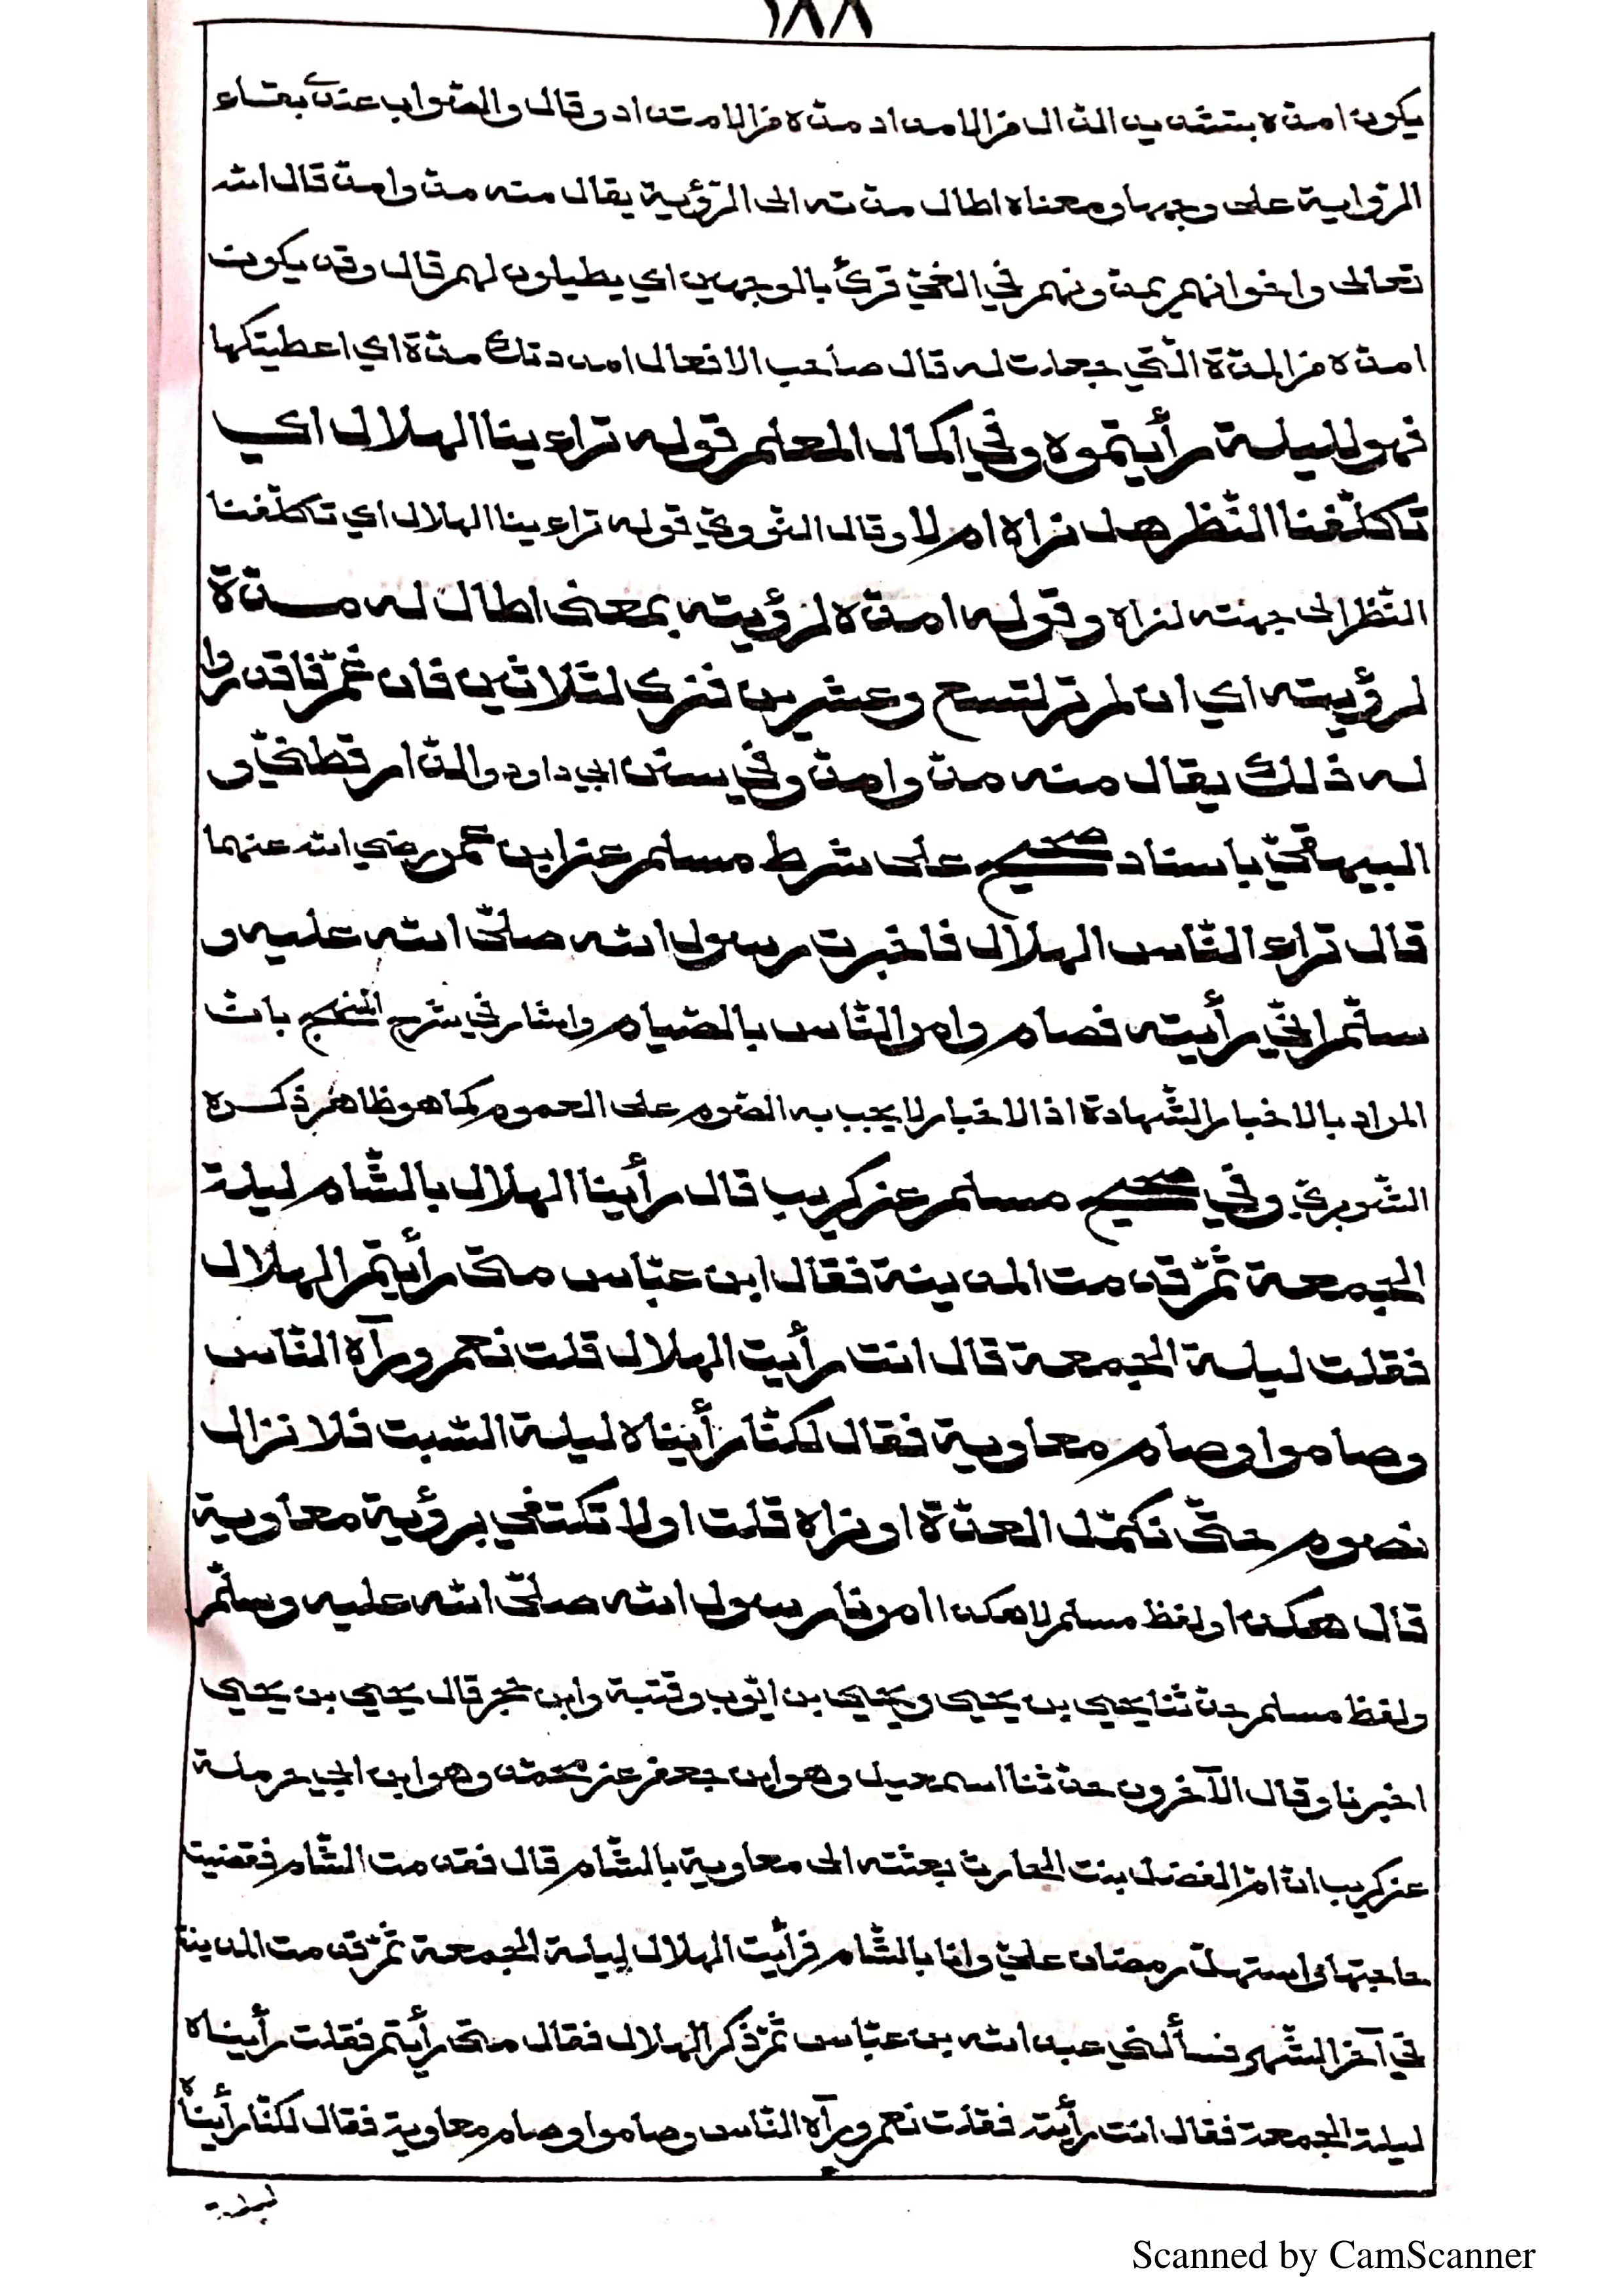 ١٨٨
يكون امدّه بتشديد الدّال من الامداد مدّه من الامتداد وقال والصّواب عندي بقاء
الرّواية على وجهها ومعناه اطال مدّته الى الرّؤية يقال منه مدّ وامدّ قال الله
تعالى واخوانهم يمدّونهم في الغيّ قرئ بالوجهين اي يطيلون لهم قال وقد يكون
امدّه من المدّة الّتي جعلت له قال صاحب الافعال امددتك مدّة اي اعطيتكها
فهو لليلة رأيتموه وفي اكمال المعلم قوله تراءينا الهلال اي
تكلّفنا النّظر هل نراه ام لا وقال النّوويّ قوله تراءينا الهلال اي تكلّفنا
النّظر الى جهته لنراه وقوله امدّه لرؤيته بمعنى اطال له مدّة
لرؤيته اي ان لم تر لتسع وعشرين فنرى لثلاثين فان غمّ فاقدروا
له ذلك يقال منه مدّ وامدّ وفي سنن ابي داود والدّارقطنيّ و
البيهقيّ باسناد صحيح على شرط مسلم عن ابن عمر رضي الله عنهما
قال تراء النّاس الهلال فاخبرت رسول الله صلّى الله عليه و
سلّم انّي رأيته فصام وامر النّاس بالصّيام واشار في شرح المنهج بانّ
المراد بالاخبار الشّهادة اذ الاخبار لا يجب به الصّوم على العموم كما هو ظاهر ذكره
الشّوبريّ وفي صحيح مسلم عن كريب قال رأينا الهلال بالشّام ليلة
الجمعة ثمّ قدمت المدينة فقال ابن عبّاس متى رأيتم الهلال
فقلت ليلة الجمعة قال انت رأيت الهلال قلت نعم ورآه النّاس
وصاموا وصام معاوية فقال لكنّا رأيناه ليلة السّبت فلا نزال
نصوم حتّى نكمّل العدّة او نراه قلت اولا تكتفي برؤية معاوية
قال هكذا ولفظ مسلم لا هكذا امرنا رسول الله صلّى الله عليه وسلّم
ولفظ مسلم حدّثنا يحيي بن يحيي ويحيي بن ايّوب وقتبة وابن حجر قال يحيي بن يحيي
اخبرنا وقال الآخرون حدّثنا اسمعيل وهو ابن جعفر عن محمّد وهو ابن ابي حرملة
عن كريب انّ امّ الفضل بنت الحارث بعثته الى معاوية بالشّام قال فقدمت الشّام فقضيت
حاجتها واستهلّ رمضان عليّ وانا بالشّام فرأيت الهلال ليلة الجمعة ثمّ قدمت المدينة
في آخر الشّهر فسألني عبد الله بن عبّاس ثمّ ذكر الهلال فقال متى رأيتم فقلت رأيناه
ليلة الجمعة فقال انت رأيته فقلت نعم ورآه النّاس وصاموا وصام معاوية فقال لكنّا رأيناه
ليلة
Scanned by CamScanner